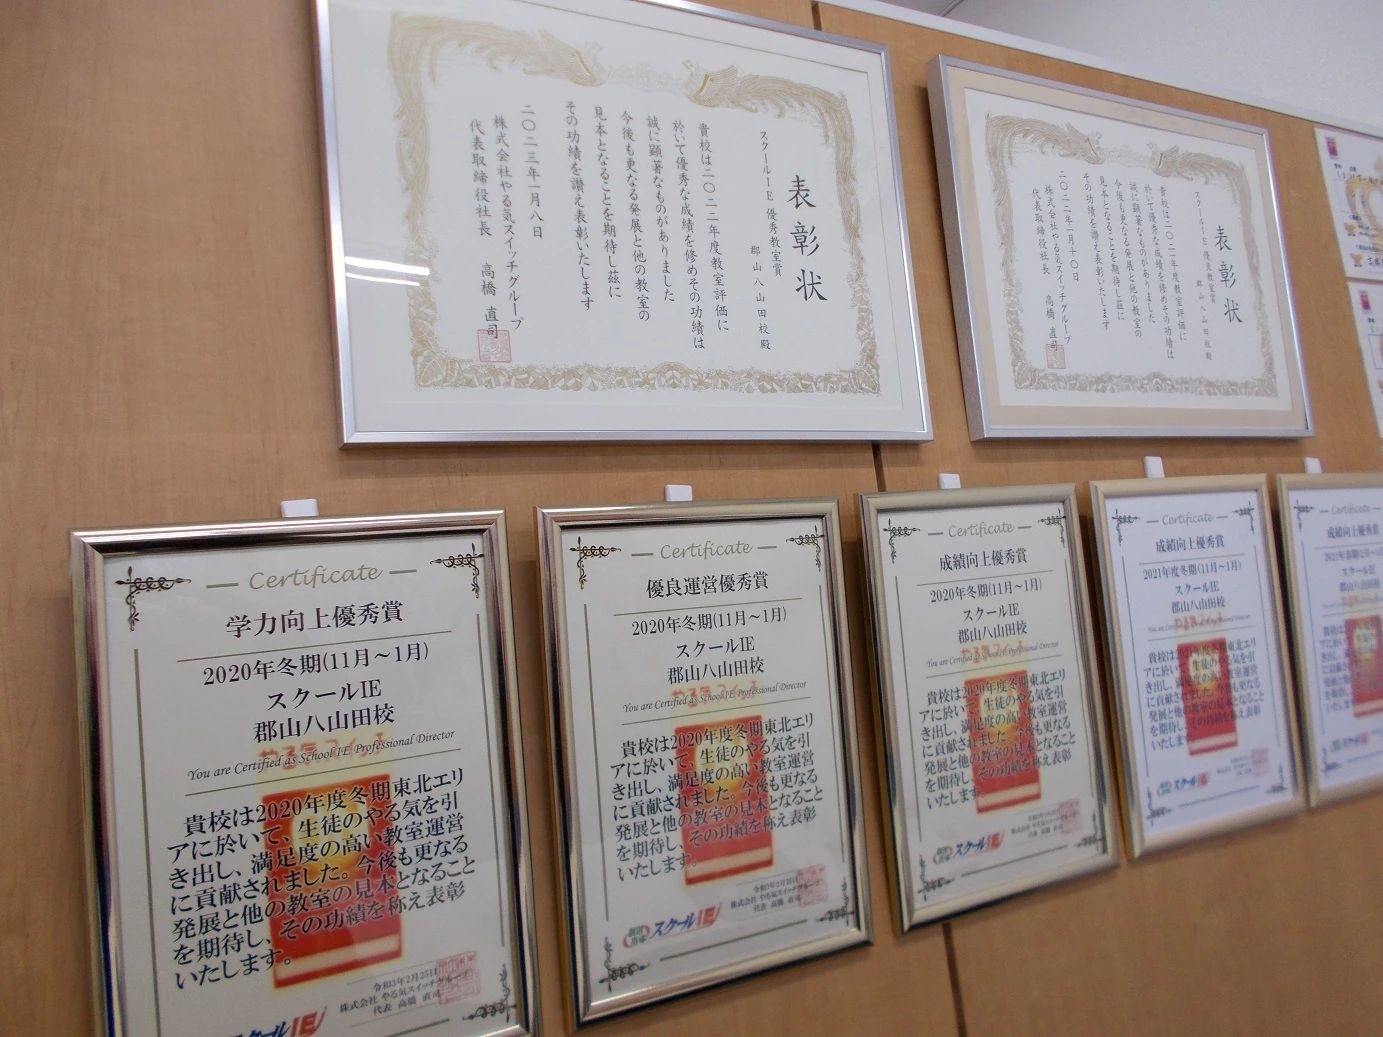 表彰状
スクールIE 優秀教室賞
郡山八山田校殿
貴校は二〇二二年度教室評価に
於いて優秀な成績を修めその功績は
誠に顕著なものがありました
今後も更なる発展と他の教室の
見本となることを期待し茲に
その功績を讃え表彰いたします
二〇二三年一月八日
株式会社やる気スイッチグループ
代表取締役社長 高橋 直司
表彰状
スクールIE 優良教室賞
郡山八山田校殿
貴校は二〇二一年度教室評価に
於いて優秀な成績を修めその功績は
誠に顕著なものがありました
今後も更なる発展と他の教室の
見本となることを期待し茲に
その功績を讃え表彰いたします
二〇二二年一月十〇日
株式会社やる気スイッチグループ
代表取締役社長 高橋 直司
Certificate
学力向上優秀賞
2020年冬期(11月～1月)
スクールIE
郡山八山田校
やる気スイッチ
You are Certified as School IE Professional Director
貴校は2020年度冬期東北エリ
アに於いて、生徒のやる気を引
き出し、満足度の高い教室運営
に貢献されました。今後も更なる
発展と他の教室の見本となること
を期待し、その功績を称え表彰
いたします。
令和3年2月25日
株式会社 やる気スイッチグループ
代表 高橋 直司
スクールIE
Certificate
優良運営優秀賞
2020年冬期(11月～1月)
スクールIE
郡山八山田校
やる気スイッチ
You are Certified as School IE Professional Director
貴校は2020年度冬期東北エリ
アに於いて、生徒のやる気を引
き出し、満足度の高い教室運営
に貢献されました。今後も更なる
発展と他の教室の見本となること
を期待し、その功績を称え表彰
いたします。
令和3年2月25日
株式会社 やる気スイッチグループ
代表 高橋 直司
個別指導 スクールIE
Certificate
成績向上優秀賞
2020年冬期(11月～1月)
スクールIE
郡山八山田校
やる気スイッチ
You are Certified as School IE Professional Director
貴校は2020年度冬期東北エリ
アに於いて、生徒のやる気を引
き出し、満足度の高い教室運営
に貢献されました。今後も更なる
発展と他の教室の見本となること
を期待し、その功績を称え表彰
いたします。
株式会社 やる気スイッチグループ
代表 高橋 直司
個別指導 スクールIE
Certificate
成績向上優秀賞
2021年度冬期(11月～1月)
スクールIE
郡山八山田校
You are Certified as School IE Professional Director
貴校は2021年度冬期東北エリ
アに於いて、生徒のやる気を引
き出し、満足度の高い教室運営
に貢献されました。今後も更なる
発展と他の教室の見本となること
を期待し、その功績を称え表彰
いたします。
スクールIE
Certificate
成績向上優秀賞
スクールIE
郡山八山田校